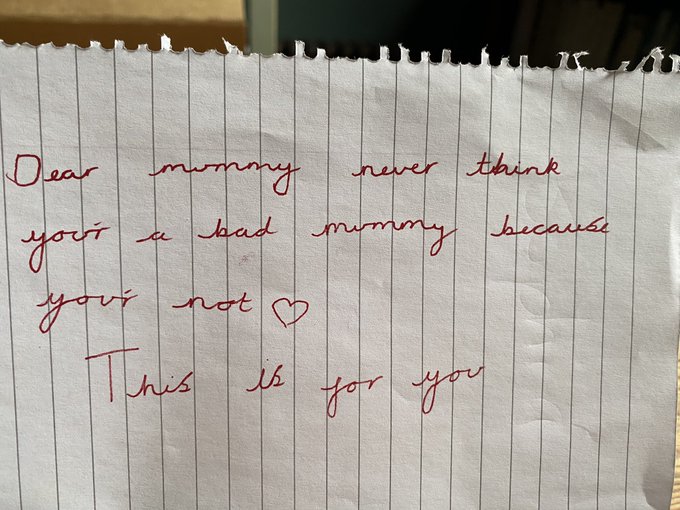 Dear mummy never think
your a bad mummy because
your not ♡
This is for you